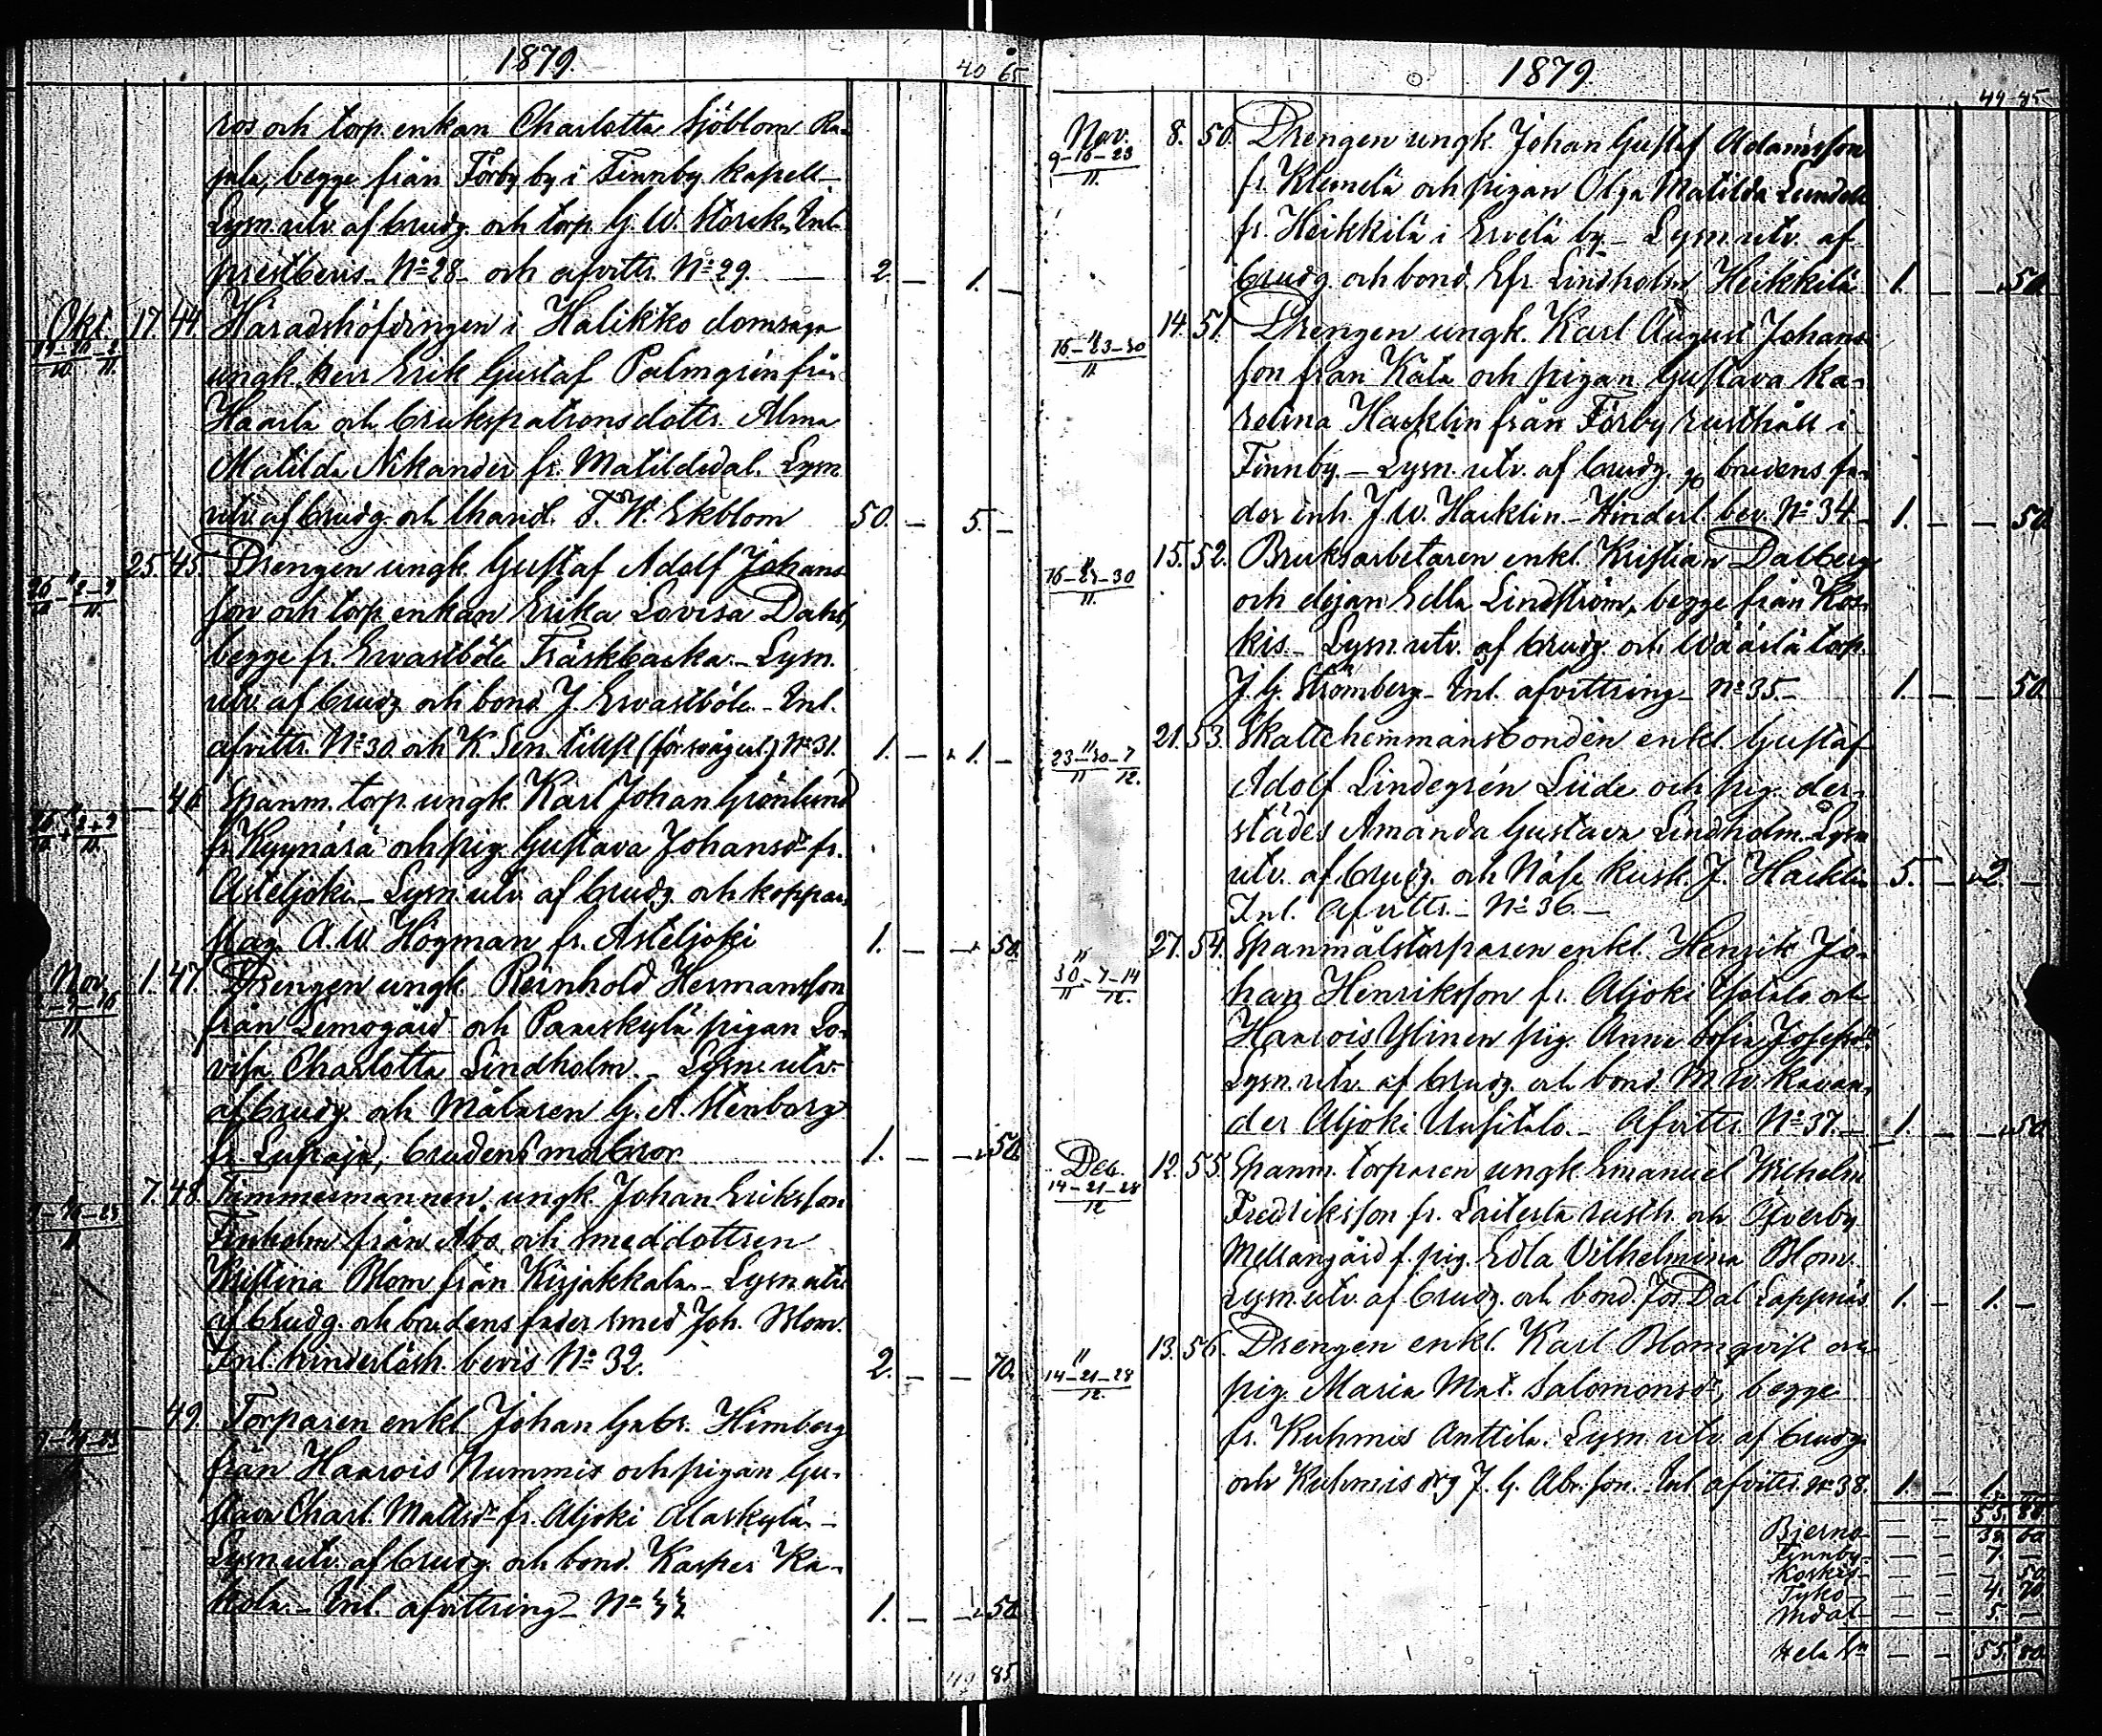 1879.
40 65
ros och torp. enkan Charlotta Sjöblom Ra-
jala, begge från Förby by i Finnby kapell.-
Lysn. utv. af brudg. och torp G. W. Storck. Inl.
prestbevis- No 28- och afvittr. No 29. — 2. — 1. —
Okt. 17. 44. Häradshöfdingen i Halikko domsaga
19-26-2
10. 11.
ungk. herr Erik Gustaf Palmgrén från
Haarla och brukspatronsdottr. Alma
Matilda Nikander fr. Matildedal. Lysn.
utv. af brudg. och handl. F. W. Ekblom 50. — 5. —
25. 45. Drengen ungk. Gustaf Adolf Johans-
26 - 2-9
10 11.
son och torp. enkan Erika Lovisa Dahl,
begge fr. Ervastböle Träskbacka.- Lysn.
utv. af brudg och bond. J. Ervastböle.- Inl.
afvittr. No 30. och K. Sen. tillst (för svågerl.) No 31. 1. — 1. —
— 46. Spanm. torp. ungk. Karl Johan Grönlund
26 + 2+9
10. 11.
fr. Kyynärä och pig. Gustava Johansdr fr.
Asteljoki.- Lysn. utv. af brudg. och koppar-
slag. A. W. Högman fr. Asteljoki 1. — — 50.
Nov. 1. 47. Drengen ungk. Reinhold Hermansson
2-9-16
11
från Lemogård och Pareskylä pigan Lo-
visa Charlotta Lindholm.- Lysn. utv.
af brudg. och Målaren G. A. Stenborg
fr. Lupaja, brudens morbror 1. — — 50.
7. 48. Timmermannen ungk. Johan Eriksson
9-16-23
11
Finholm från Åbo och smeddottren
Kristina Blom från Kirjakkala.- Lysn utv.
af brudg. och brudens fader smed Joh. Blom.
Inl. hinderlösh. bevis No 32. 2. — — 70.
— 49. Torparen enkl. Johan Gabr. Himberg
9-16-23
från Haarois Nummis och pigan Gu-
stava Charl. Mattsdr fr. Aljoki Alaskylä.-
Lysn utv. af brudg. och bond. Kasper Ka-
kola.- Inl. afvittring- No 33 1. — — 50.
49 85
1879.
49-85
Nov. 8. 50. Drengen ungk. Johan Gustaf Adamsson
9-16-23
11.
fr. Klemelä och pigan Olga Matilda Lundell
fr. Heikkilä i Ervelä by.- Lysn. utv. af
brudg. och bond. Efr. Lindholm Heikkilä 1. — — 50.
" 14. 51. Drengen ungk. Karl August Johans-
16-23-30
11.
son från Kata och pigan Gustava Ka-
rolina Hacklin från Förby rusthåll i
Finnby.- Lysn. utv. af brudg. o brudens fa-
der inh. J. W. Hacklin.- Hinderl. bev. No 34- 1. — — 50.
" 15. 52. Bruksarbetaren enkl. Kristian Dalberg
16-23-30
11.
och dejan Edla Lindström, begge från Kos-
kis.- Lysn. utv. af brudg. och Wäärlä torp.
J. G. Strömberg- Inl. afvittring- No 35.- 1. — — 50.
" 21. 53. Skattehemmansbonden enkl. Gustaf
23-30-7
11 12.
Adolf Lindegrén Liide och pig. der-
städes Amanda Gustava Lindholm. Lysn
utv. af brudg. och Näse kusk. J. Hacklin 5. — 2. —
Inl. Afvittr.- No 36.-
" 27. 54. Spanmålstorparen enkl. Henrik Jo-
30-7-14
11 12.
han Henriksson fr. Aljoki Ylitalo och
Haarois Ylinen pig. Anna Sofia Josefsdr.
Lysn. utv. af brudg. och bond. M. W. Kavan-
der Aljoki Uusitalo.- Afvittr. No 37.- 1. — — 50.
Dec. 12. 55. Spanm. torparen ungk. Emanuel Wilhelm
14-21-28
12
Fredriksson fr. Laiterla rusth. och Öfverby
Mellangård f. pig. Edla Vilhelmina Blom.
Lysn. utv. af brudg. och bond. Jos Dal Lappnäs 1. — 1. —
" 13. 56. Drengen enkl. Karl Blomqvist och
14-21-28
12.
pig. Maria Mat. Salomonsdr, begge
fr. Kuhmis Anttila. Lysn utv. af brudg.
och Kuhmis drg J. G. Abr.son. Inl afvittr. No 38. 1. — 1. —
— — 55. 80.
Bjerno- — — 38. 60
Finnby- — — 7. —
Koskis- — — — 50.
Tyko- — — 4. 70
Mdal- — — 5. —
Hela Sn — — 55. 80.